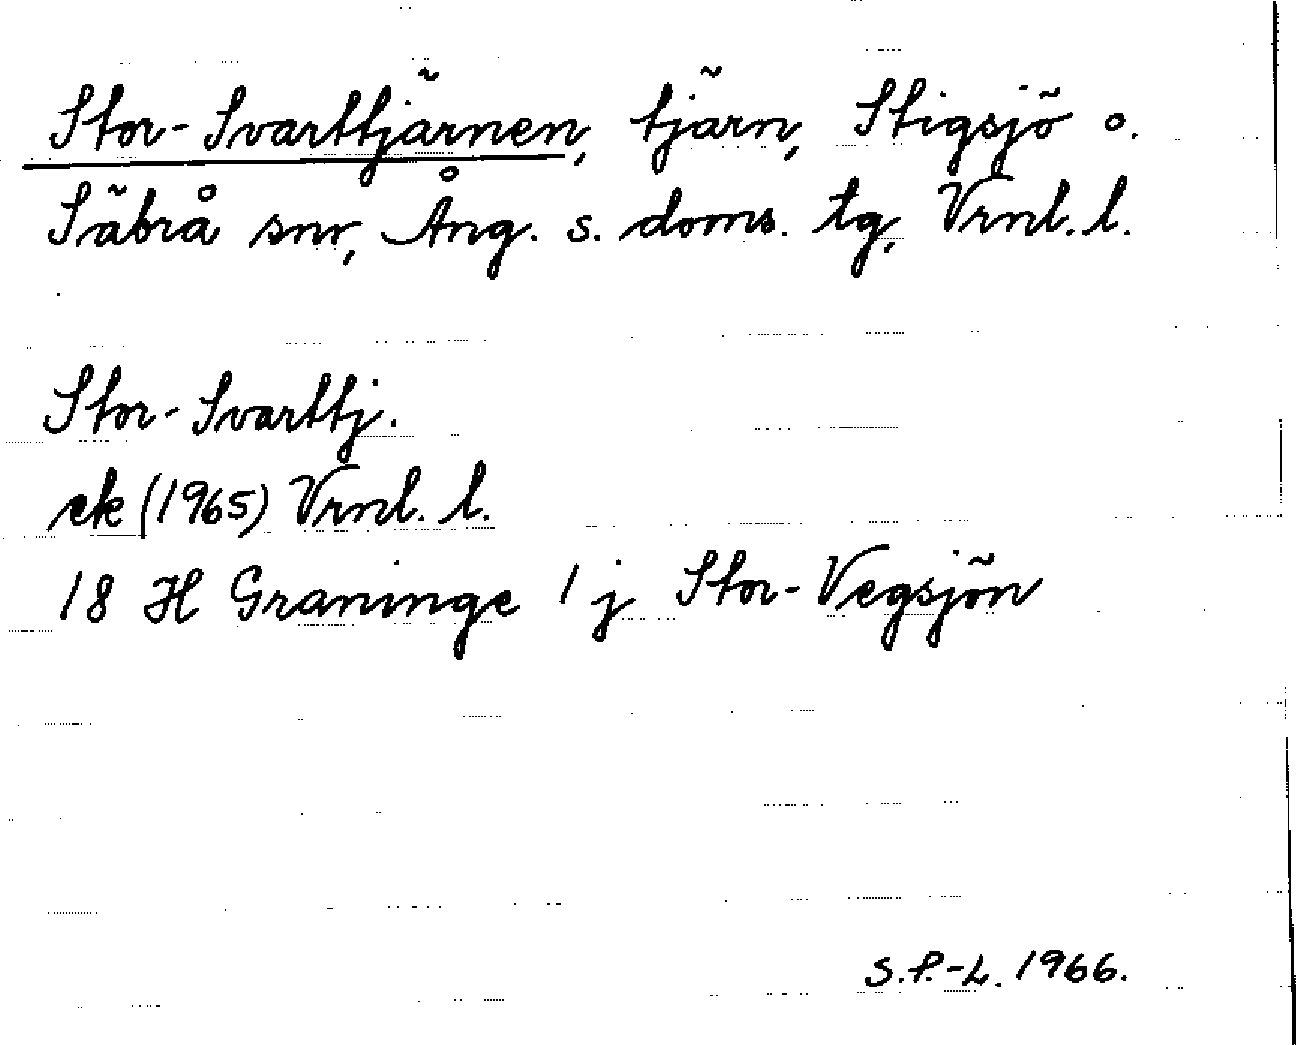 Stor-Svarttjärnen, tjärn, Stigsjö o.
Säbrå snr, Ång. s. doms. tg, Vrnl. l.
Stor-Svarttj.
ek (1965) Vrnl. l.
18 H Graninge 1 j Stor-Vegsjön
S.P.-L. 1966.